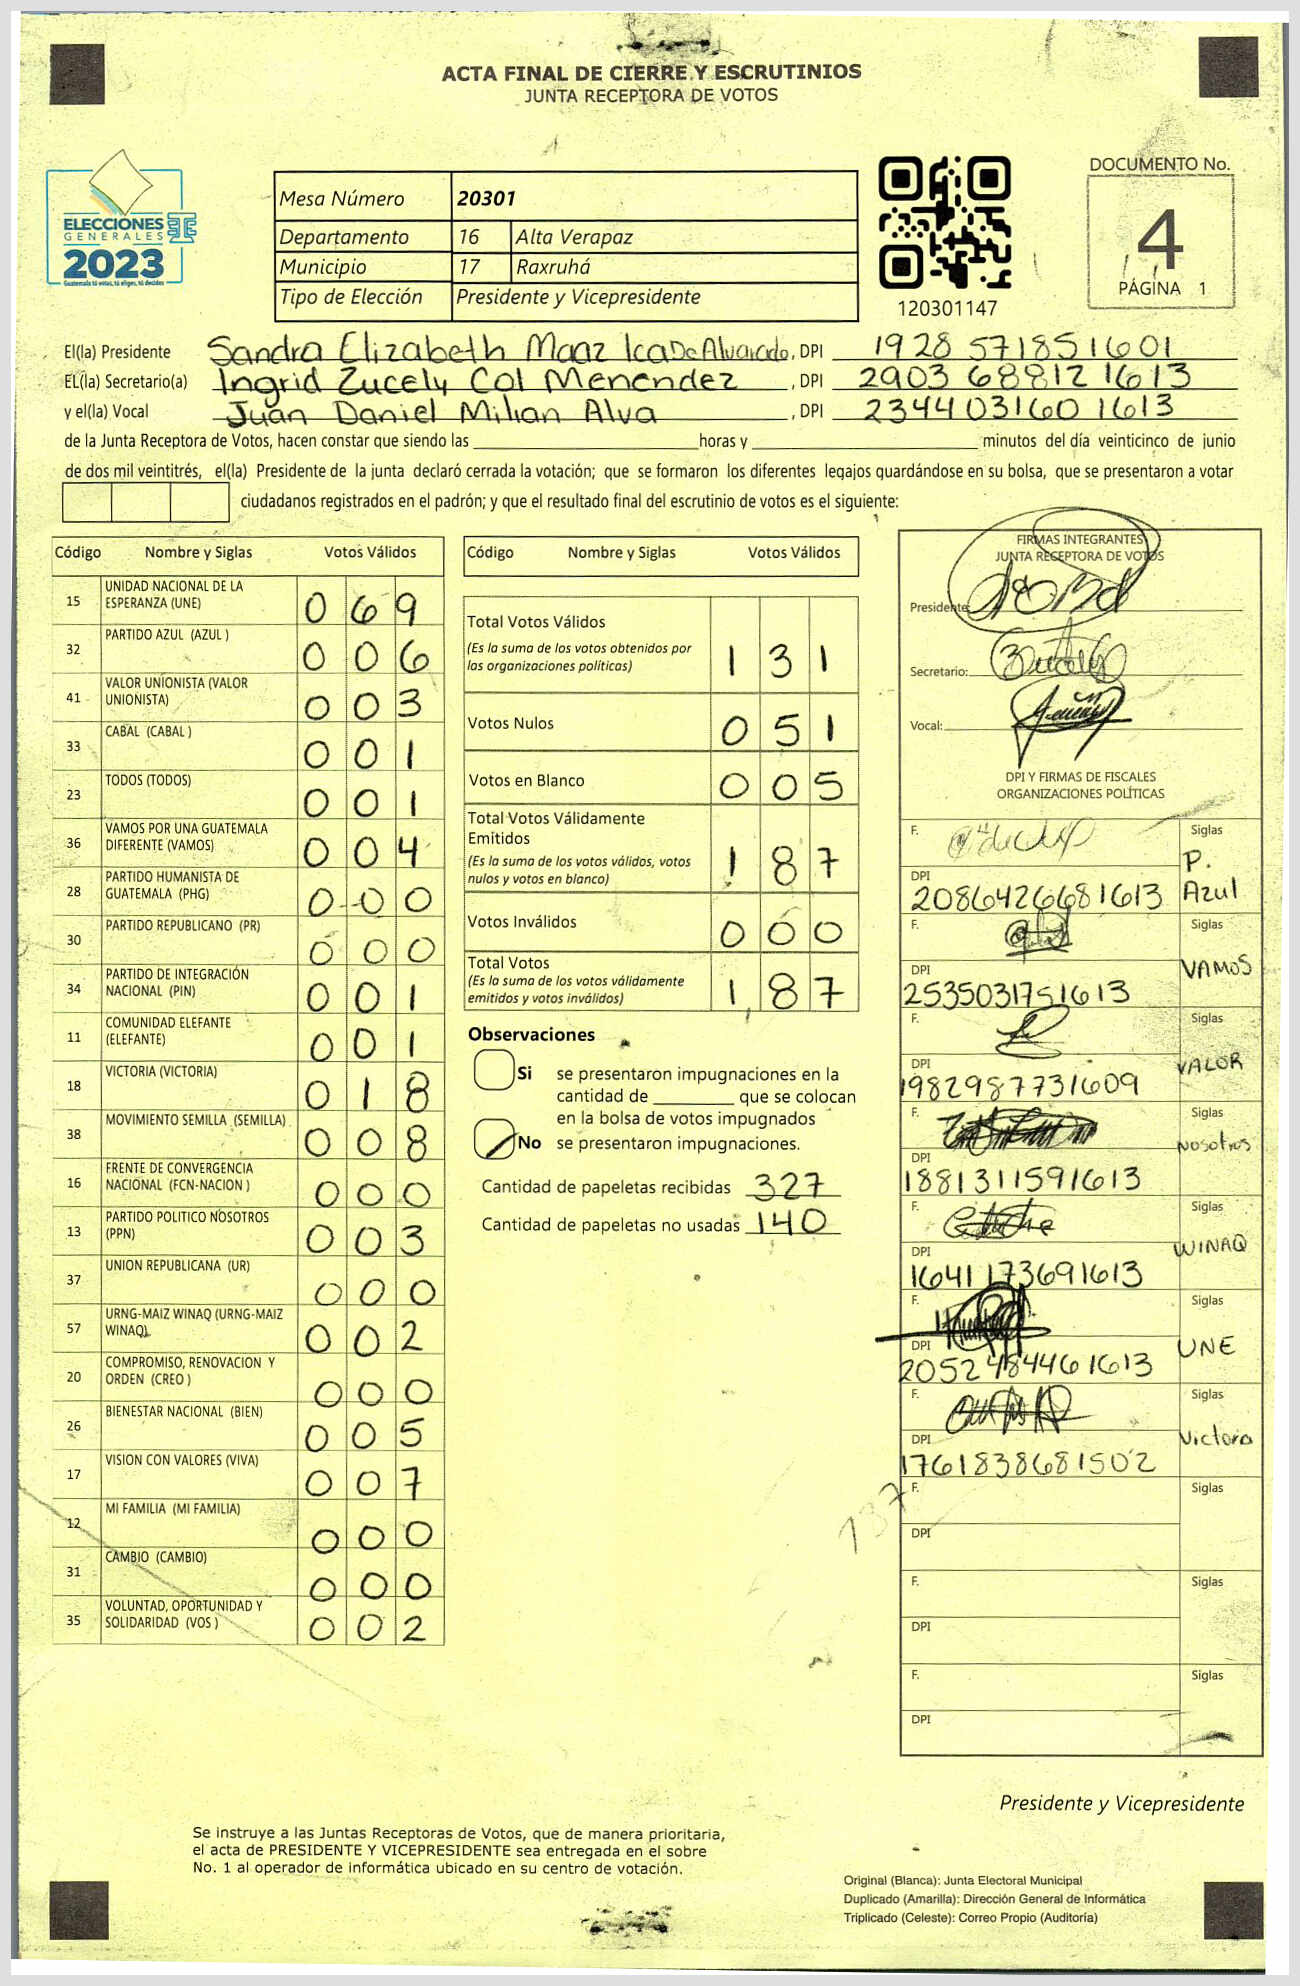 ACTA FINAL DE CIERRE Y ESCRUTINIOS
JUNTA RECEPTORA DE VOTOS
ELECCIONES
GENERALES
2023
Guatemala tú votas, tú eliges, tú decides
Mesa Número 20301
Departamento 16 Alta Verapaz
Municipio 17 Raxruhá
Tipo de Elección Presidente y Vicepresidente
120301147
DOCUMENTO No.
4
PÁGINA 1
El(la) Presidente Sandra Elizabeth Maaz Ical De Alvarado, DPI 1928 57185 1601
EL(la) Secretario(a) Ingrid Zucely Col Menendez, DPI 2903 68812 1613
y el(la) Vocal Juan Daniel Milian Alva, DPI 2344 03160 1613
de la Junta Receptora de Votos, hacen constar que siendo las ____ horas y ____ minutos del día veinticinco de junio
de dos mil veintitrés, el(la) Presidente de la junta declaró cerrada la votación; que se formaron los diferentes legajos guardándose en su bolsa, que se presentaron a votar
ciudadanos registrados en el padrón; y que el resultado final del escrutinio de votos es el siguiente:
Código Nombre y Siglas Votos Válidos
15 UNIDAD NACIONAL DE LA
ESPERANZA (UNE) 0 6 9
32 PARTIDO AZUL (AZUL ) 0 0 6
41 VALOR UNIONISTA (VALOR
UNIONISTA) 0 0 3
33 CABAL (CABAL ) 0 0 1
23 TODOS (TODOS) 0 0 1
36 VAMOS POR UNA GUATEMALA
DIFERENTE (VAMOS) 0 0 4
28 PARTIDO HUMANISTA DE
GUATEMALA (PHG) 0 0 0
30 PARTIDO REPUBLICANO (PR) 0 0 0
34 PARTIDO DE INTEGRACIÓN
NACIONAL (PIN) 0 0 1
11 COMUNIDAD ELEFANTE
(ELEFANTE) 0 0 1
18 VICTORIA (VICTORIA) 0 1 8
38 MOVIMIENTO SEMILLA (SEMILLA) 0 0 8
16 FRENTE DE CONVERGENCIA
NACIONAL (FCN-NACION ) 0 0 0
13 PARTIDO POLITICO NOSOTROS
(PPN) 0 0 3
37 UNION REPUBLICANA (UR) 0 0 0
57 URNG-MAIZ WINAQ (URNG-MAIZ
WINAQ) 0 0 2
20 COMPROMISO, RENOVACION Y
ORDEN (CREO ) 0 0 0
26 BIENESTAR NACIONAL (BIEN) 0 0 5
17 VISION CON VALORES (VIVA) 0 0 7
12 MI FAMILIA (MI FAMILIA) 0 0 0
31 CAMBIO (CAMBIO) 0 0 0
35 VOLUNTAD, OPORTUNIDAD Y
SOLIDARIDAD (VOS ) 0 0 2
Código Nombre y Siglas Votos Válidos
Total Votos Válidos
(Es la suma de los votos obtenidos por
las organizaciones políticas) 1 3 1
Votos Nulos 0 5 1
Votos en Blanco 0 0 5
Total Votos Válidamente
Emitidos
(Es la suma de los votos válidos, votos
nulos y votos en blanco) 1 8 7
Votos Inválidos 0 0 0
Total Votos
(Es la suma de los votos válidamente
emitidos y votos inválidos) 1 8 7
Observaciones
Si se presentaron impugnaciones en la
cantidad de ____ que se colocan
en la bolsa de votos impugnados
No se presentaron impugnaciones.
Cantidad de papeletas recibidas 327
Cantidad de papeletas no usadas 140
FIRMAS INTEGRANTES
JUNTA RECEPTORA DE VOTOS
Presidente:
Secretario:
Vocal:
DPI Y FIRMAS DE FISCALES
ORGANIZACIONES POLÍTICAS
F. Siglas
P. Azul
DPI 2086426681613
F. Siglas
VAMOS
DPI 2535031751613
F. Siglas
VALOR
DPI 1982987731609
F. Siglas
Nosotros
DPI 1881311591613
F. Siglas
WINAQ
DPI 1641173691613
F. Siglas
UNE
DPI 2052484461613
F. Siglas
Victoria
DPI 1761838681502
137
F. Siglas
DPI
F. Siglas
DPI
F. Siglas
DPI
Presidente y Vicepresidente
Se instruye a las Juntas Receptoras de Votos, que de manera prioritaria,
el acta de PRESIDENTE Y VICEPRESIDENTE sea entregada en el sobre
No. 1 al operador de informática ubicado en su centro de votación.
Original (Blanca): Junta Electoral Municipal
Duplicado (Amarilla): Dirección General de Informática
Triplicado (Celeste): Correo Propio (Auditoría)